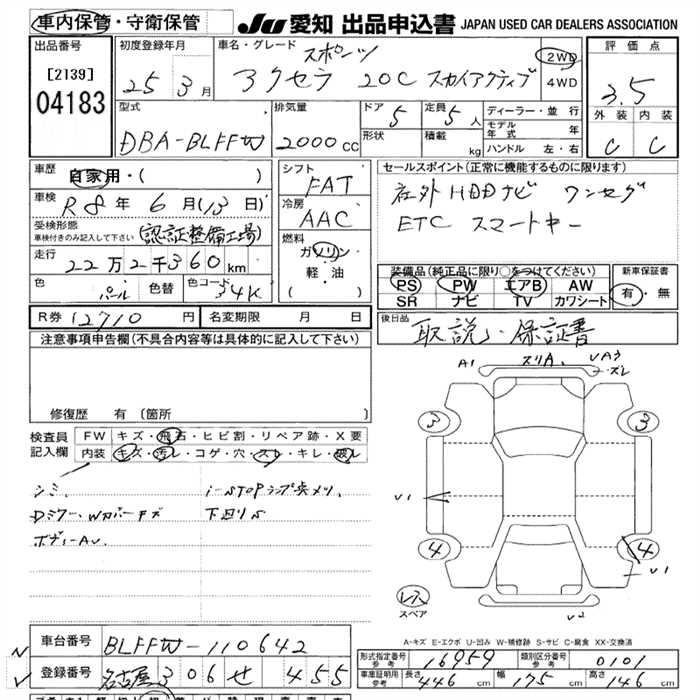 車内保管・守衛保管
JU 愛知 出品申込書 JAPAN USED CAR DEALERS ASSOCIATION
出品番号 初度登録年月 車名・グレード スポーツ 評価点
[2139] 25年3月 アクセラ 20C スカイアクティブ 2WD 4WD 3.5
04183
型式 排気量 ドア 5 定員 5人 ディーラー・並行 外装 内装
DBA-BLFFW 2000cc 形状 積載 kg モデル年式 年 C C
ハンドル 左・右
車歴 自家用・( ) シフト FAT セールスポイント(正常に機能するものに限ります)
車検 R8年6月(13日) 冷房 AAC 社外HDDナビ ワンセグ
受検形態 (認証整備工場) ETC スマートキー
車検付きのみ記入して下さい
燃料 ガソリン・軽油
走行 22万2千360km
装備品(純正品に限り○をつけてください) 新車保証書
PS PW エアB AW 有・無
色 パール 色替 色コード 34K
SR ナビ TV カワシート
R券 12710円 名変期限 月 日 後日品 取説、保証書
注意事項申告欄(不具合内容等は具体的に記入して下さい)
A1 スリA. VA3
・ズレ
3 3
修復歴 有 (箇所
検査員 FW キズ・飛石・ヒビ割・リペア跡・X要
記入欄 内装 キズ・汚レ・コゲ・穴・スレ・キレ・破レ
シミ.
Dミラー、Wカバーキズ
ボディーAU.
V1
4 4
V1
スペア
V2
A-キズ E-エクボ U-凹み W-補修跡 S-サビ C-腐食 XX-交換済
車台番号 BLFFW-110642
形式指定番号 参考 16959 類別区分番号 参考 0101
登録番号 名古屋 306 せ 455
車庫証明用 参考 長さ 446cm 幅 175cm 高さ 146cm